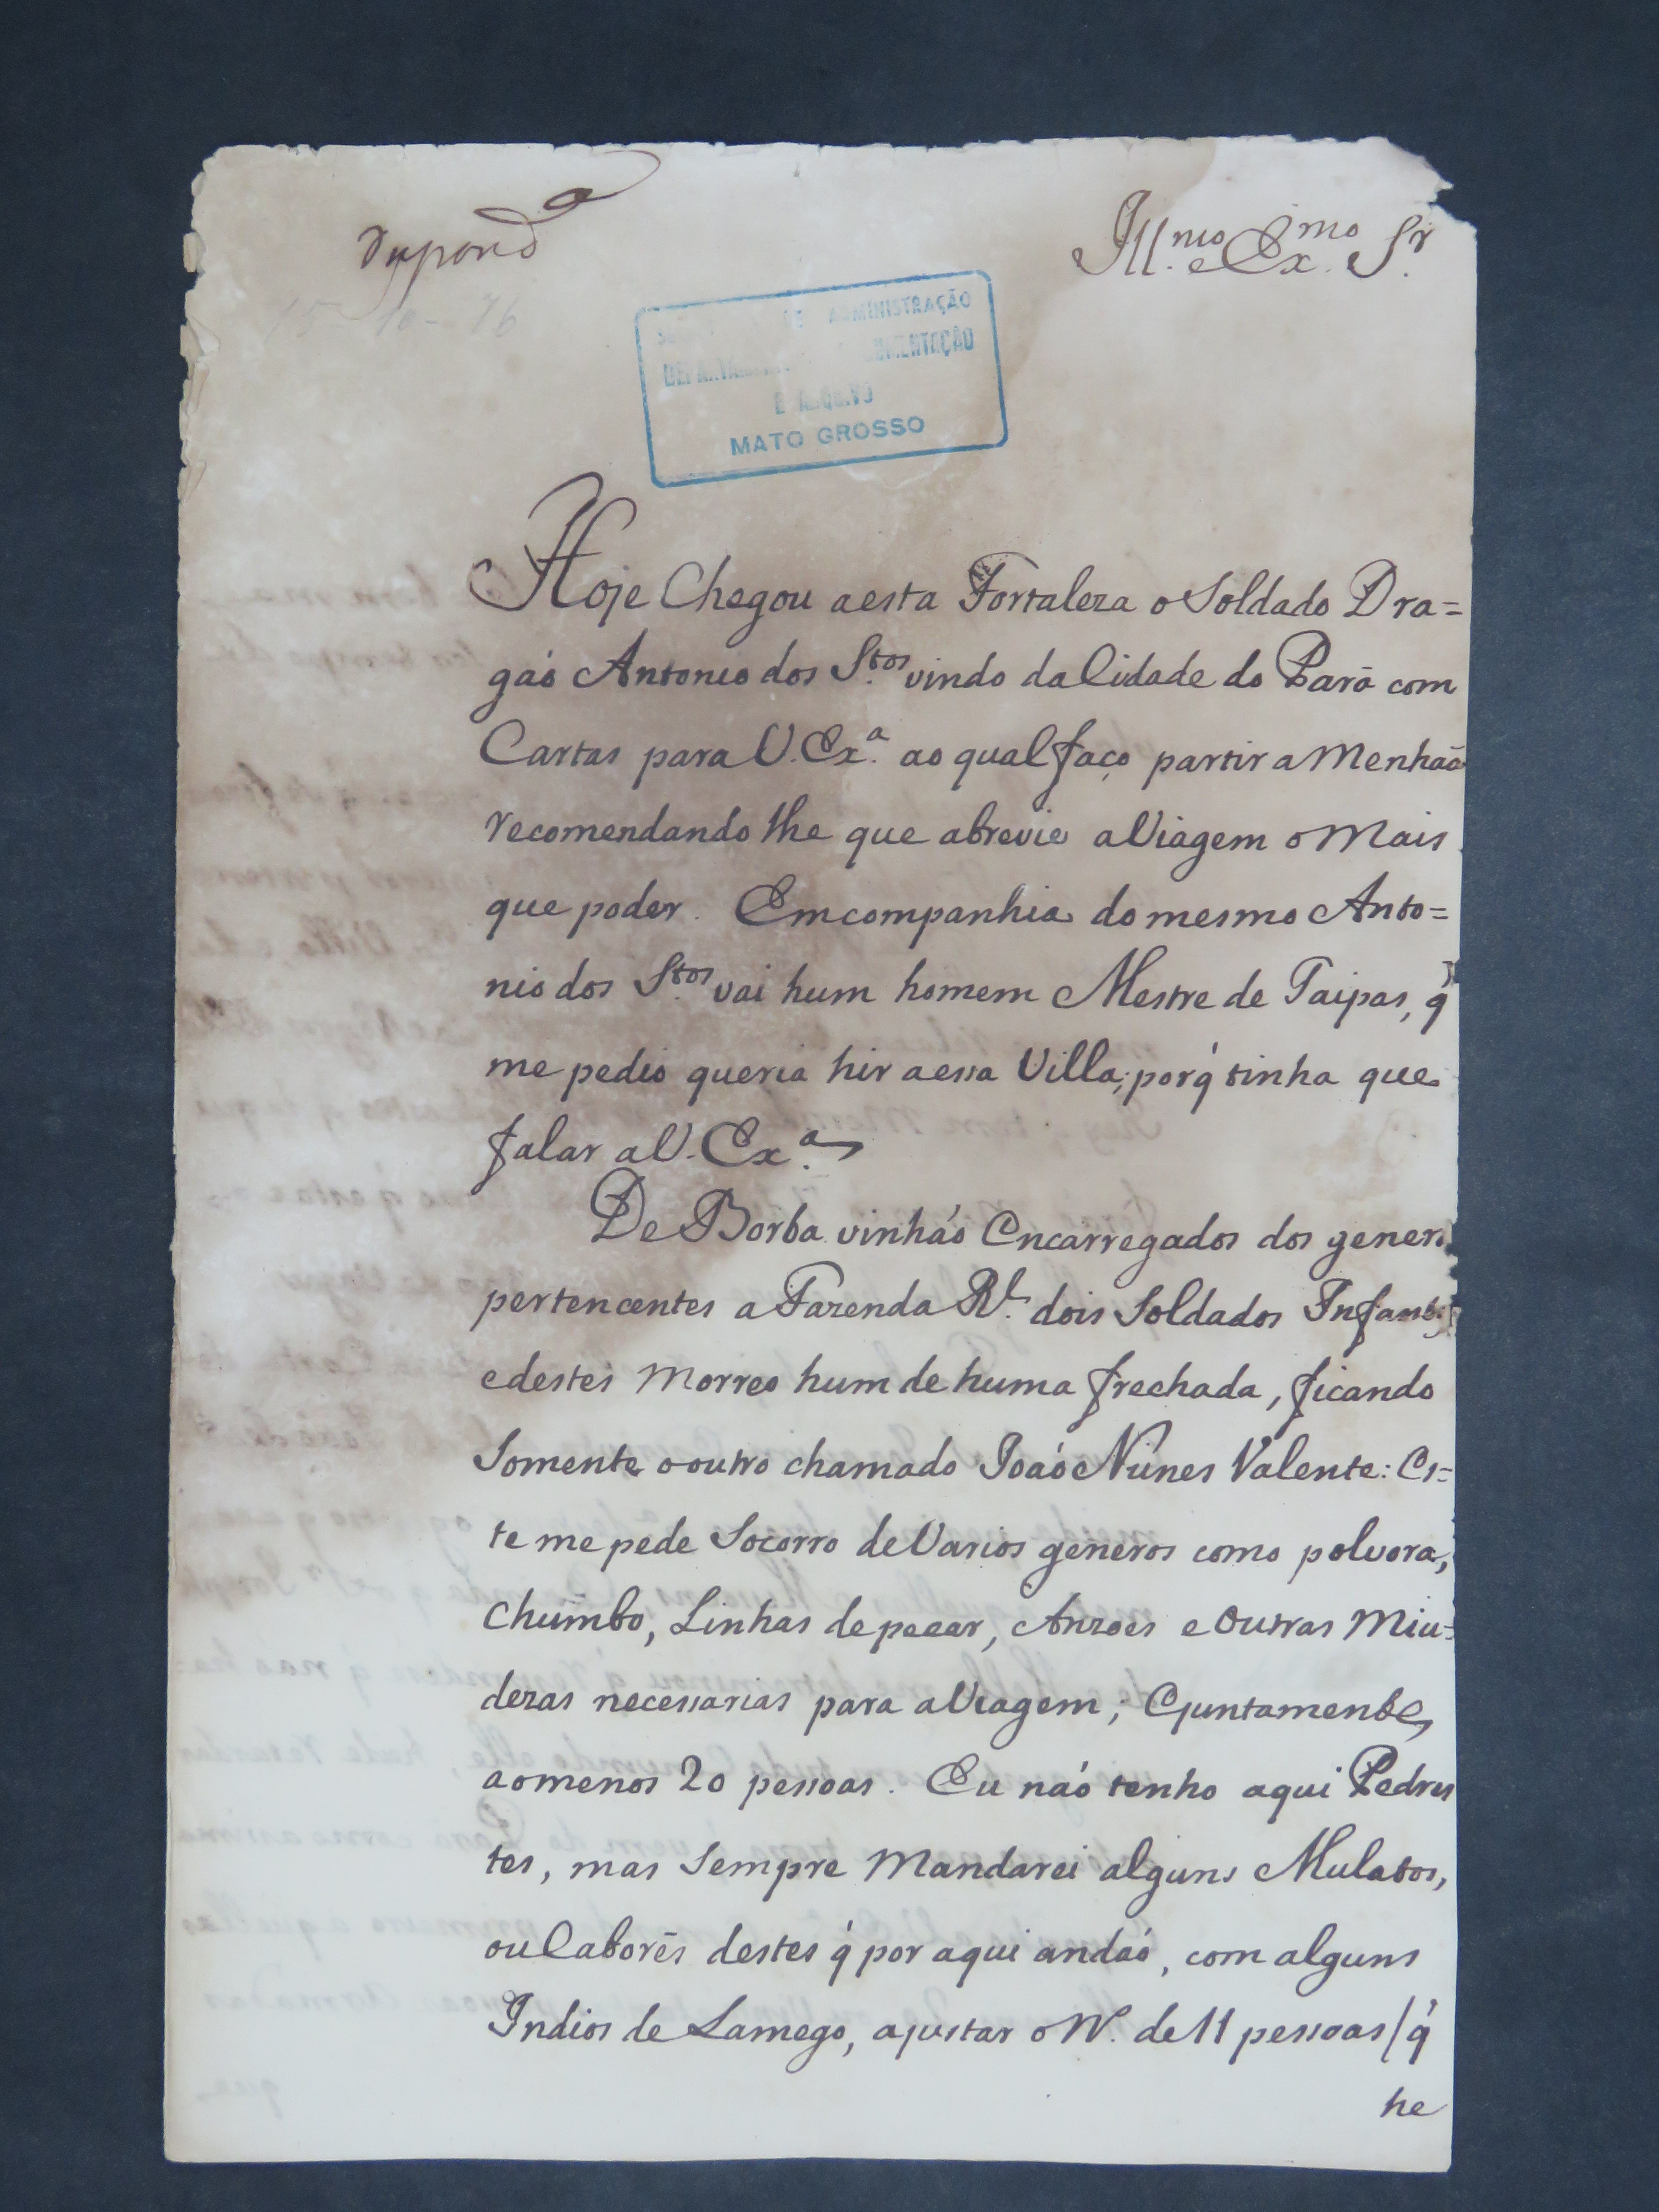 Respond.ª
Ill.mo e Ex.mo Sr.
15-10-76
DE ADMINISTRAÇÃO
DEPARTAMENTO DOCUMENTAÇÃO
E ARQUIVO
MATO GROSSO
Hoje Chegou aesta Fortaleza o Soldado Dra=
gaõ Antonio dos S.tos vindo da Cidade do Pará com
Cartas para V. Ex.ª ao qual faço partir a Menhaã
recomendando lhe que abrevie a Viagem o Mais
que poder. Em companhia do mesmo Anto=
nio dos S.tos vai hum homem Mestre de Taipas, q̃
me pedio queria hir aessa Villa, porq̃ tinha que
falar a V. Ex.ª
De Borba vinhaõ Encarregados dos genero
pertencentes a Fazenda R.l dois Soldados Infant.s
e destes Morreo hum de huma frechada, ficando
Somente o outro chamado Joaõ Nunes Valente: Es=
te me pede Socorro de Varios generos como polvora,
Chumbo, Linhas de pescar, Anzoes e Outras Miu=
dezas necessarias para a Viagem; Ejuntamente
aomenos 20 pessoas. Eu naõ tenho aqui Pedres
tes, mas Sempre Mandarei alguns Mulatos,
ou Caborés destes q̃ por aqui andaõ, com alguns
Indios de Lamego, ajustar o N.º de 11 pessoas /q̃
he